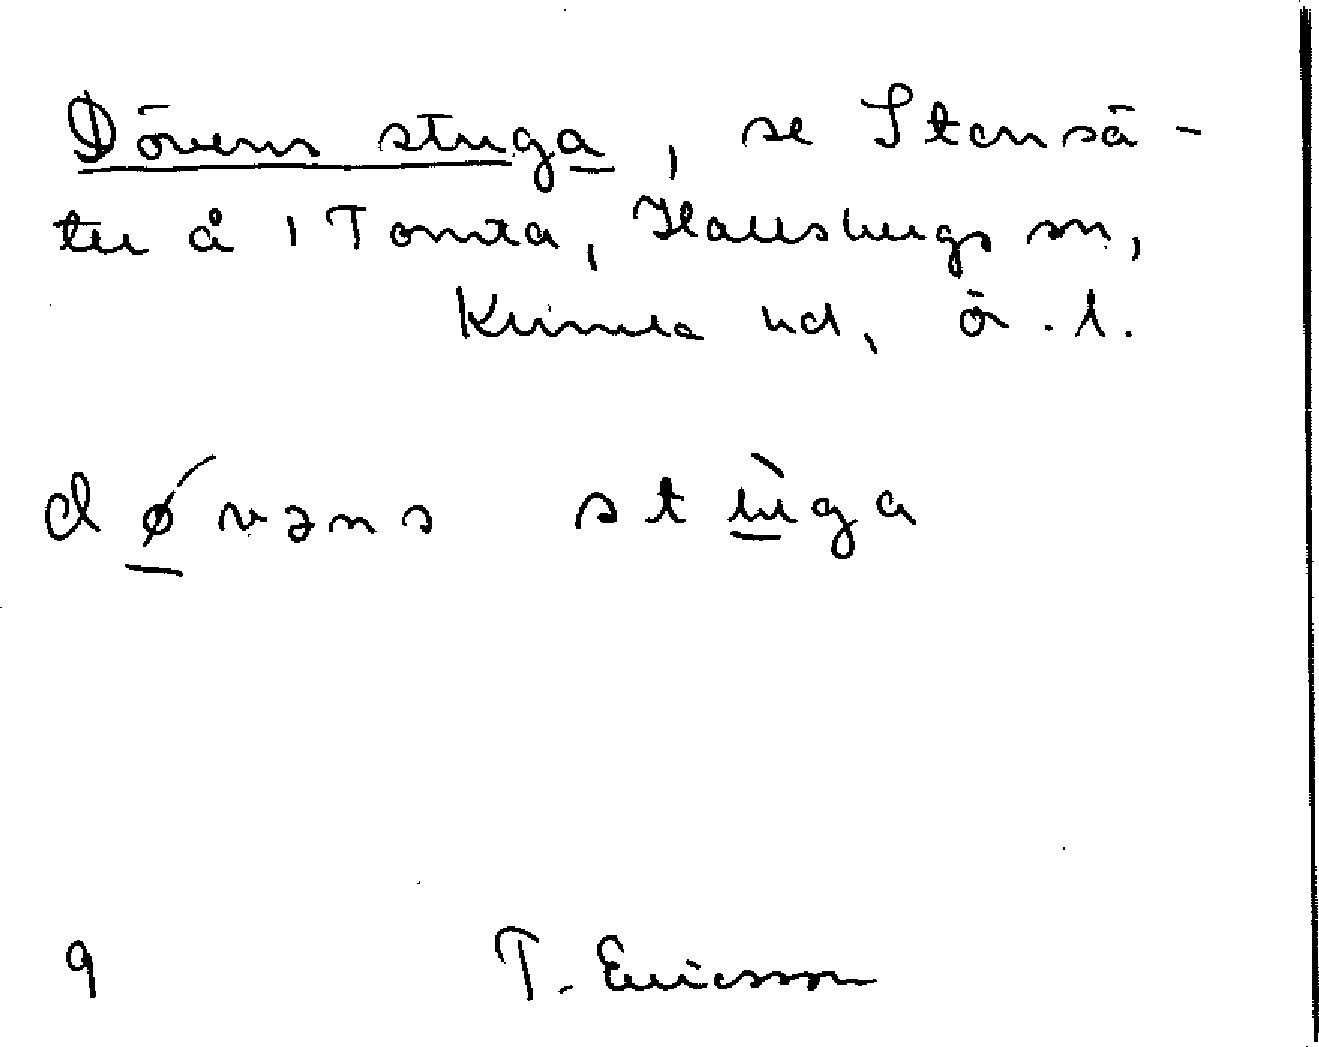 Dövens stuga, se Stensä-
ter å 1 Tomta, Hallsbergs sn,
Kumla hd, Ö.l.
dǿvəns stùga
9 T. Ericsson